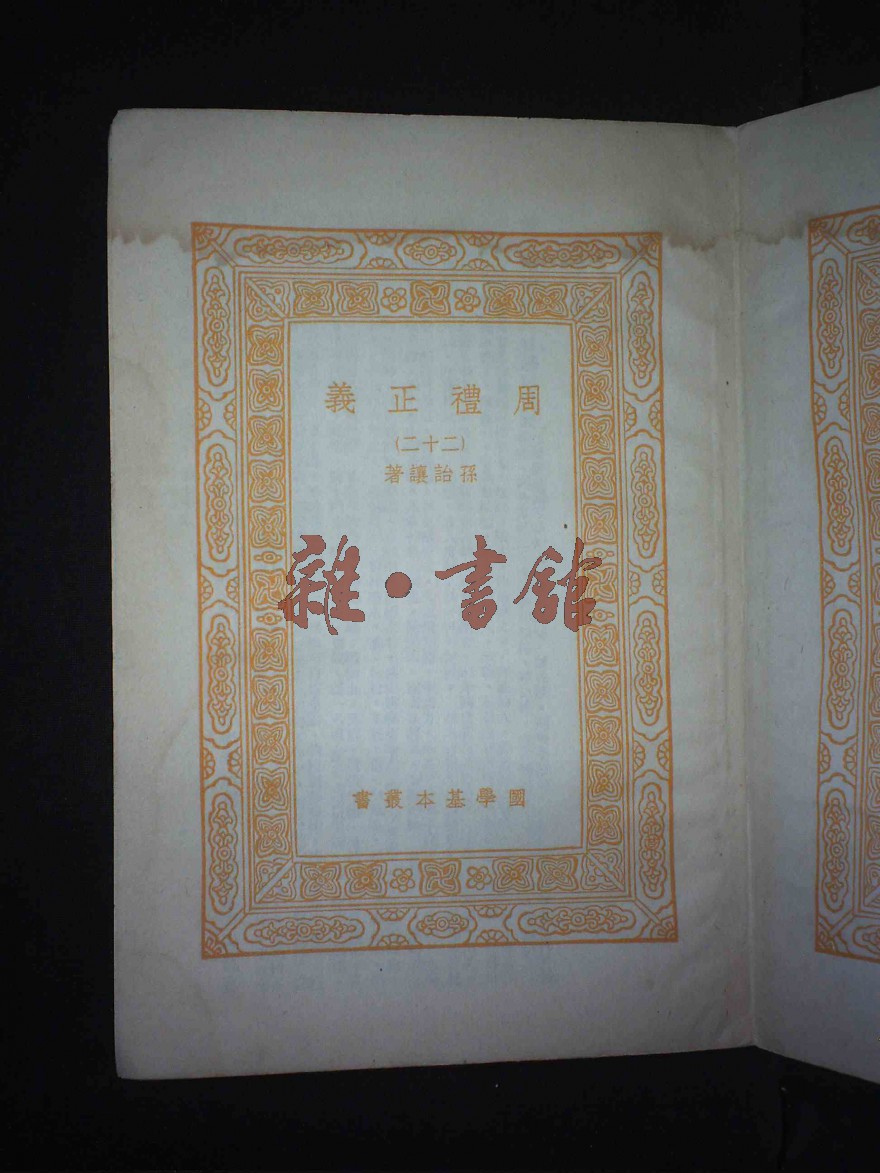 周禮正義
(二十二)
孫詒讓著
雜·書館
國學基本叢書